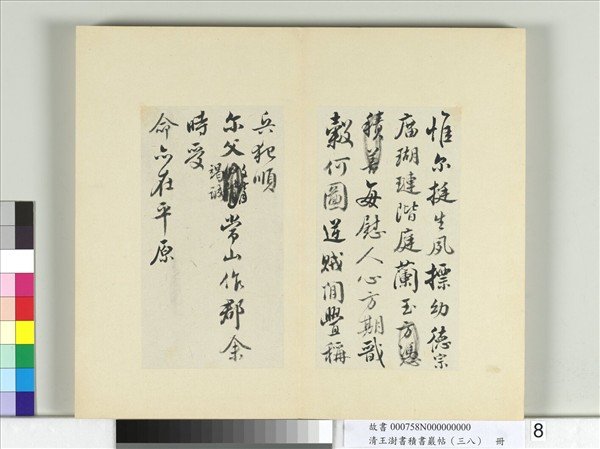 惟尔挺生夙摽幼德宗
庿瑚璉階庭蘭玉方憑
積善每慰人心方期戩
糓何圖逆賊間舋稱
兵犯順
尔父竭誠常山作郡余
時受
命亦在平原
故書 000758N000000000
清王澍書積書巖帖（三八） 冊
8